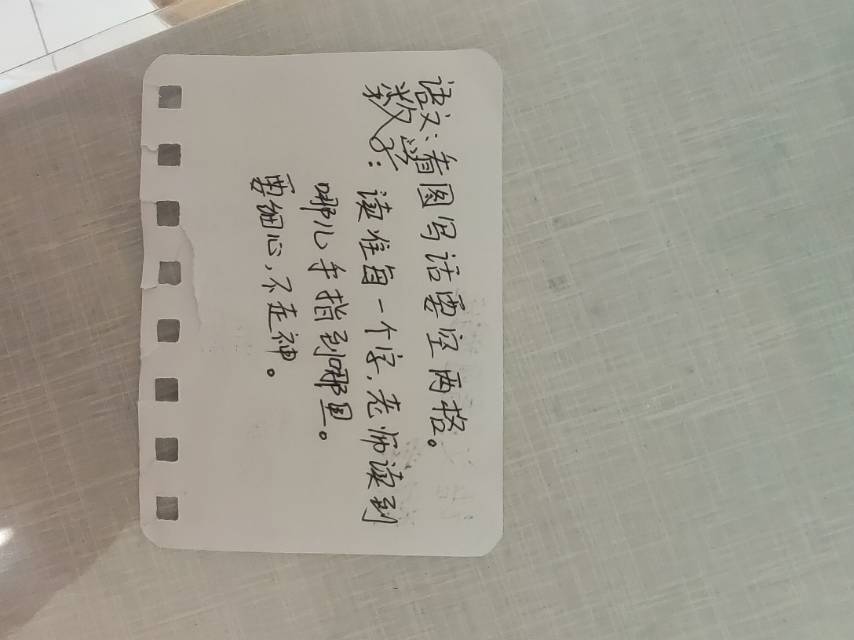 语文：看图写话要空两格。
数学：读准每一个字，老师读到
哪儿手指到哪里。
要细心，不走神。